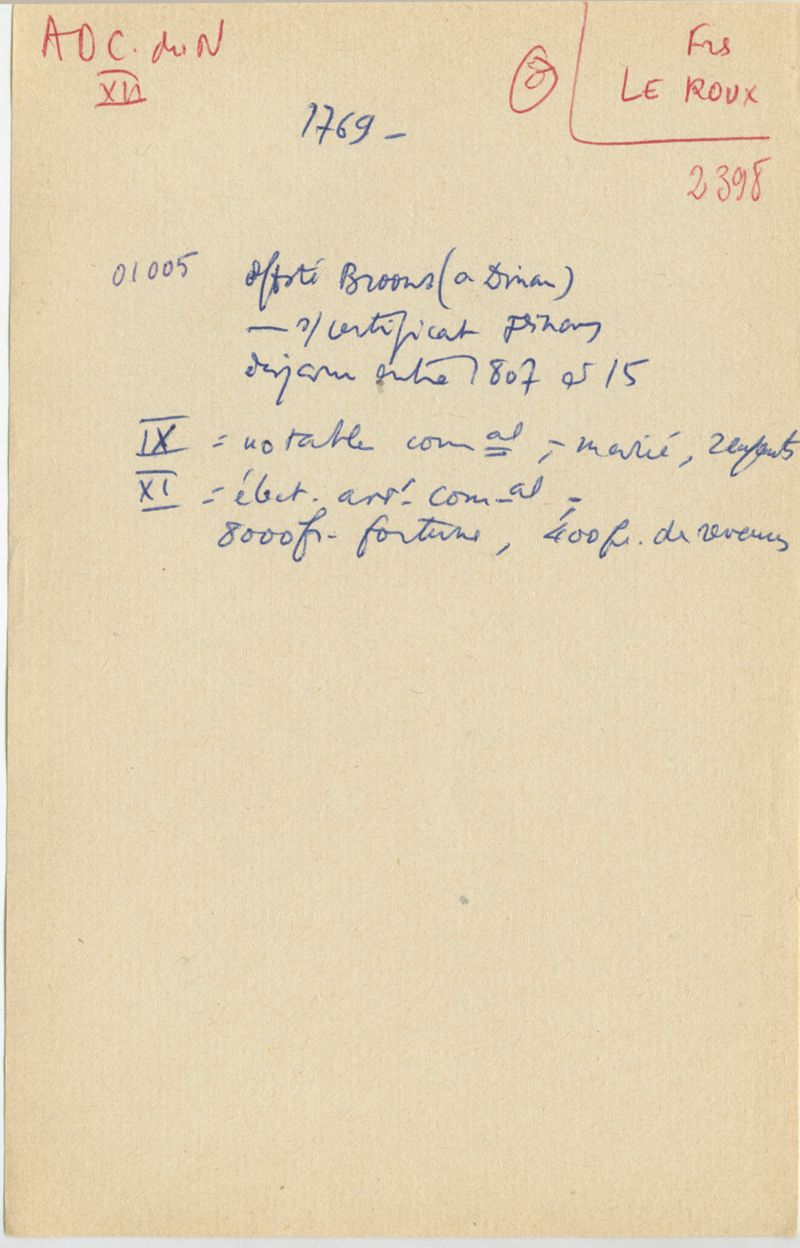 ADC. du N
XII
Frs
LE ROUX
2398
1769 -
01005
Broons (a Dinan)
— s/ certificat
entre 1807 et 15
IX = notable com al ; - marié, 2 enfants
XI = élect. arrt com-al ; -
8000 fr - fortune, 400 fr. de revenus